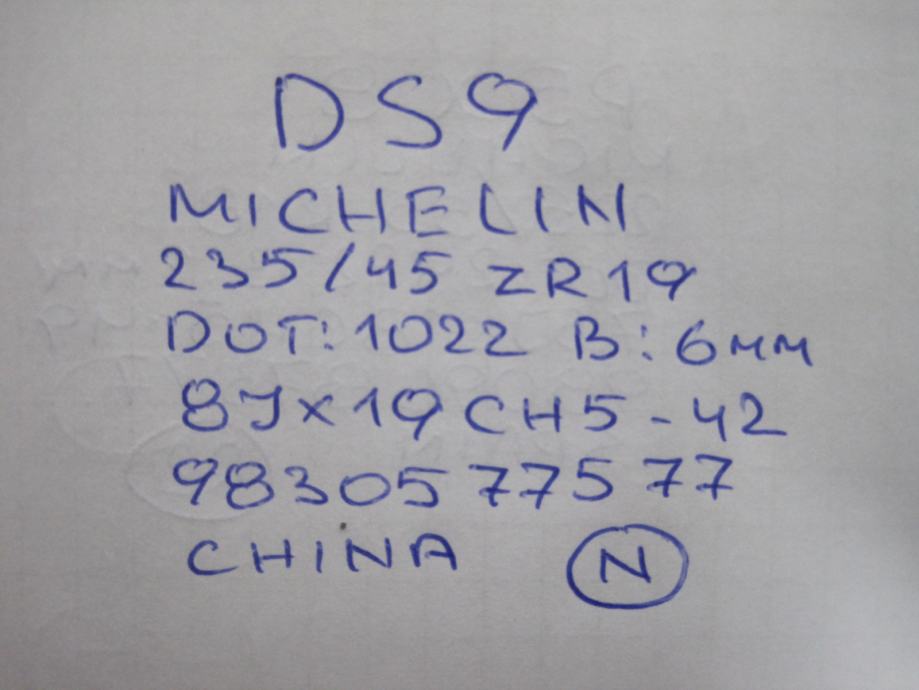 DS9
MICHELIN
235/45 ZR19
DOT: 1022 B: 6мм
8J×19 CH5-42
9830577577
CHINA N